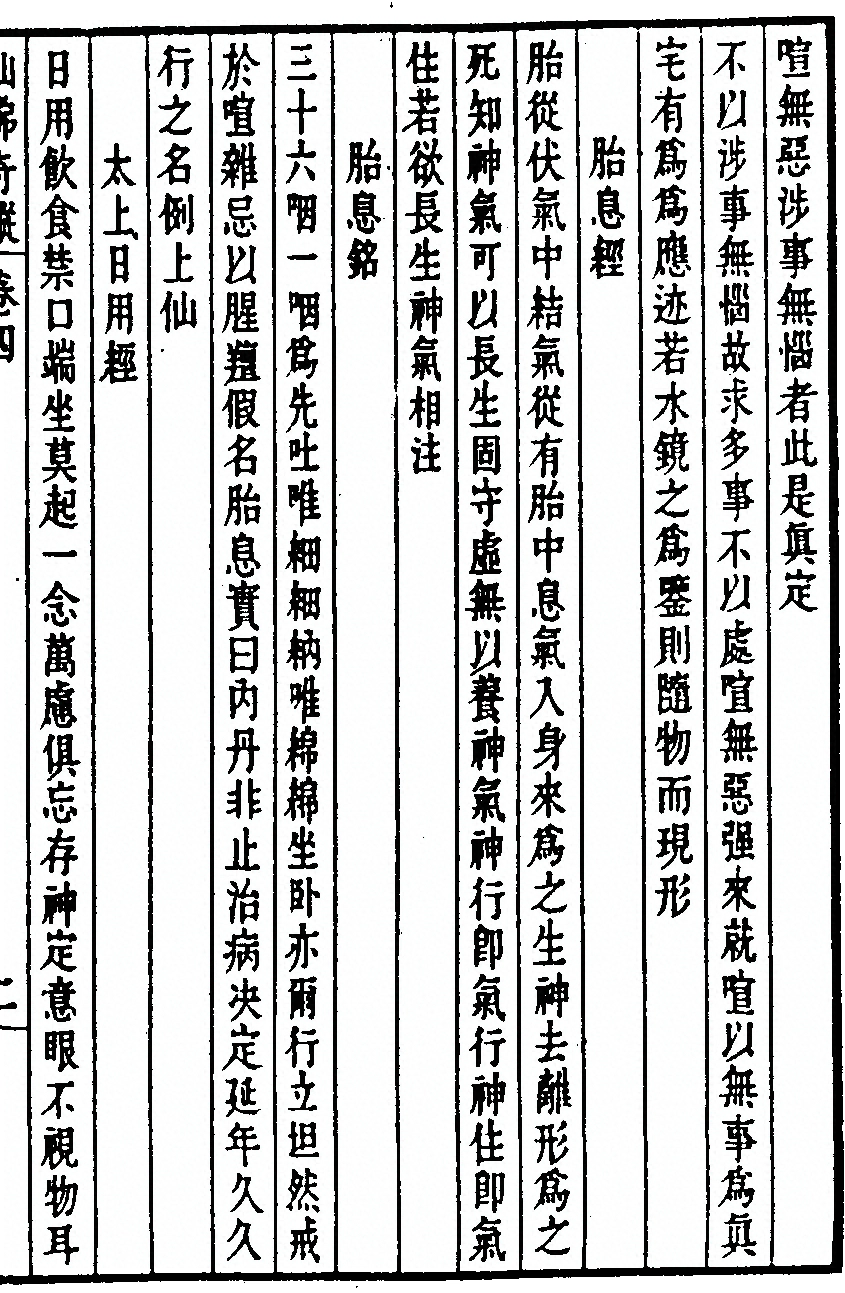 喧無惡涉事無惱者此是眞定
不以涉事無惱故求多事不以處喧無惡强來就喧以無事爲眞
宅有爲爲應迹若水鏡之爲鑒則隨物而現形
胎息經
胎從伏氣中結氣從有胎中息氣入身來爲之生神去離形爲之
死知神氣可以長生固守虛無以養神氣神行卽氣行神住卽氣
住若欲長生神氣相注
胎息銘
三十六咽一咽爲先吐唯細細納唯綿綿坐卧亦爾行立坦然戒
於喧雜忌以腥羶假名胎息實曰內丹非止治病决定延年久久
行之名例上仙
太上日用經
日用飮食禁口端坐莫起一念萬慮俱忘存神定意眼不視物耳
卷四
二